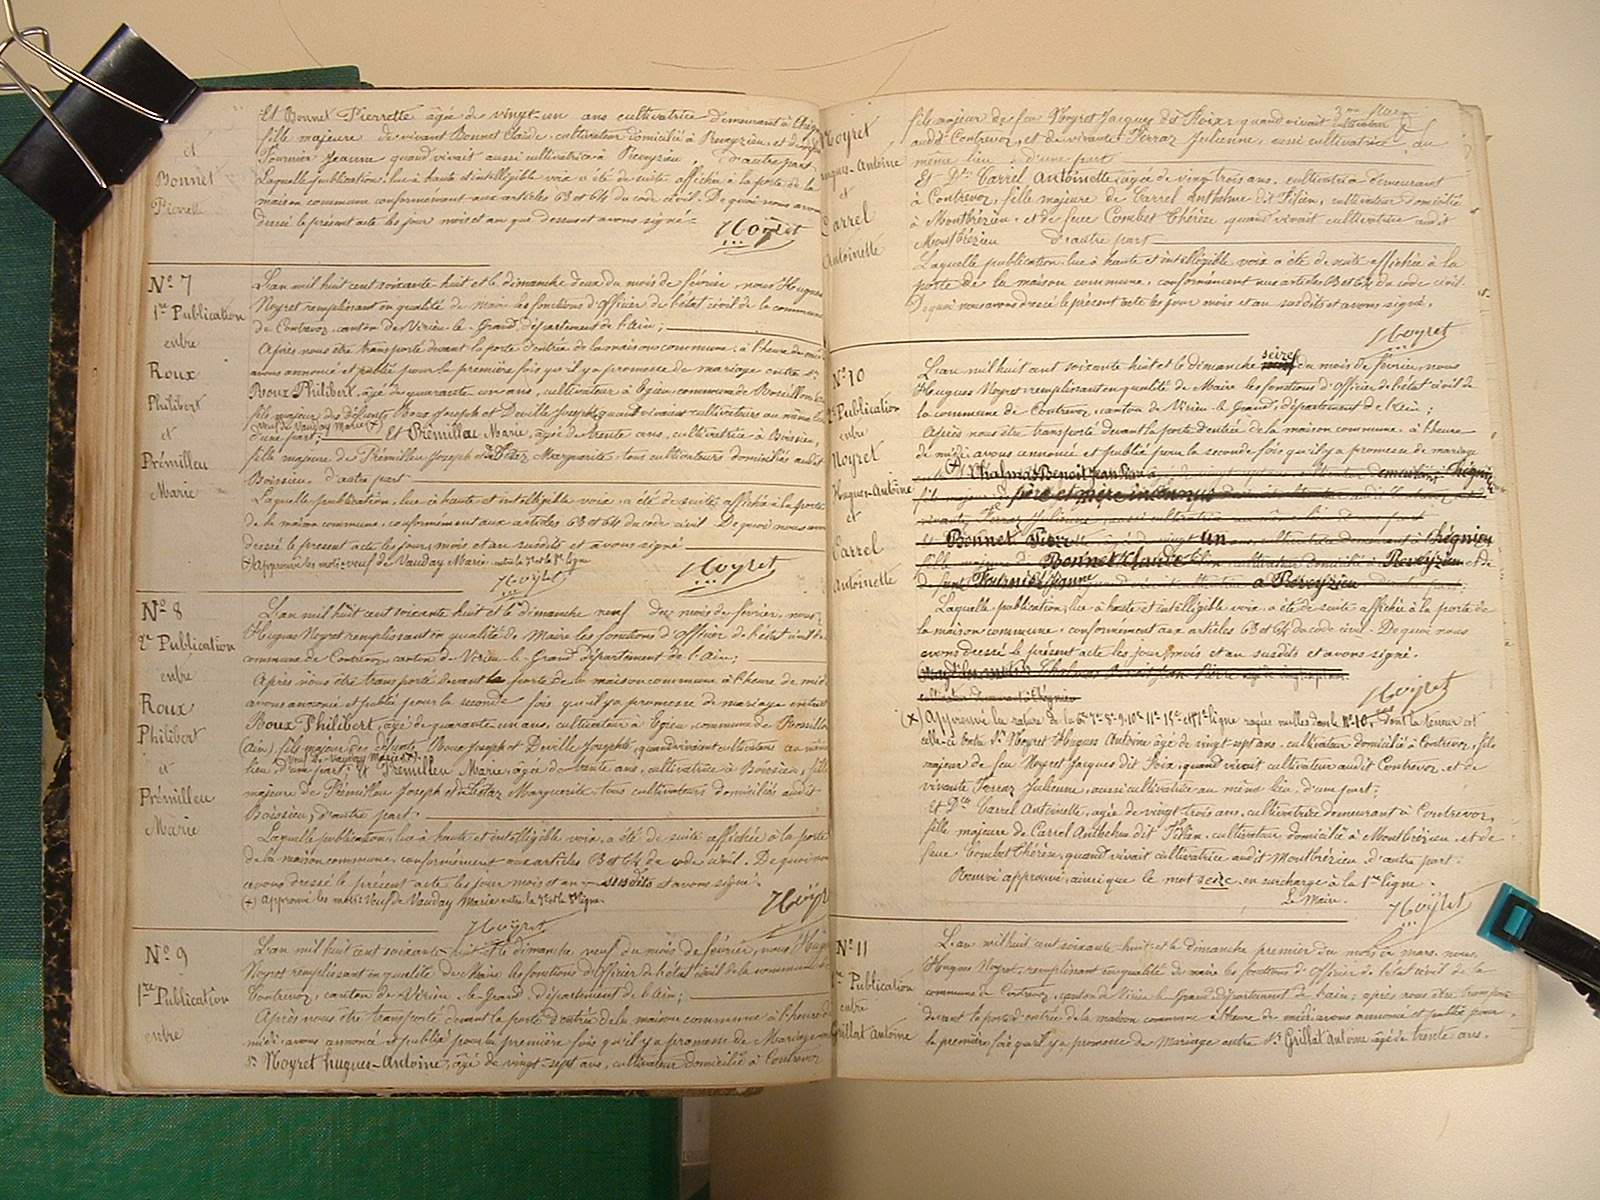 Et Bonnet Pierrette âgée de vingt-un ans cultivatrice demeurant à
fille majeure de vivant Bonnet Claude, cultivateur domicilié à Preveyzieu, et de
Fournier Jeanne quand vivait aussi cultivatrice à Preveyzieu, d'autre part.
Laquelle publication, lue à haute et intelligible voix a été de suite affichée à la porte de la
maison commune conformément aux articles 63 et 64 du code civil. De quoi nous avons
dressé le présent acte les jour mois et an que dessus et avons signé.
Noyret
et
Bonnet
Pierrette
No 7
1re Publication
entre
Roux
Philibert
et
Prémilleu
Marie
L'an mil huit cent soixante huit et le dimanche deux du mois de février, nous Hugues
Noyret remplissant en qualité de maire les fonctions d'Officier de l'état civil de la commune
de Contrevoz, canton de Virieu-le-Grand, département de l'Ain;
Après nous être transporté devant la porte d'entrée de la maison commune à l'heure de
avons annoncé et publié pour la première fois qu'il y a promesse de mariage entre Sr
Roux Philibert, âgé de quarante un ans, cultivateur à Egieu commune de
fils majeur des défunts Roux Joseph et Deville Josephte quand vivaient cultivateurs au même
(veuf de Vauday Marie (x)
d'une part; Et Prémilleu Marie, âgée de trente ans, cultivatrice à Boissieu,
fille majeure de Prémilleu Joseph et de Marguerite, tous cultivateurs domiciliés audit
Boissieu, d'autre part
Laquelle publication, lue à haute et intelligible voix, a été de suite affichée à la porte
de la maison commune, conformément aux articles 63 et 64 du code civil. De quoi nous avons
dressé le présent acte les jours, mois et an susdits et avons signé
(x) Approuvé les mots: veuf de Vauday Marie entre la 7e et la 8e ligne
Noyret Noyret
No 8
2e Publication
entre
Roux
Philibert
et
Prémilleu
Marie
L'an mil huit cent soixante huit et le dimanche neuf du mois de février, nous
Hugues Noyret remplissant en qualité de Maire les fonctions d'Officier de l'état civil de la
commune de Contrevoz canton de Virieu-le-Grand département de l'Ain;
Après nous être transporté devant la porte de la maison commune à l'heure de midi
avons annoncé et publié pour la seconde fois qu'il y a promesse de mariage entre
Roux Philibert, âgé de quarante un ans, cultivateur à Egieu, commune de
(Ain), fils majeur des défunts Roux Joseph et Deville Josephte, quand vivaient cultivateurs au même
veuf de Vauday Marie (x)
lieu, d'une part; Et Prémilleu Marie, âgée de trente ans, cultivatrice à Boissieu, fille
majeure de Prémilleu Joseph et de Marguerite tous cultivateurs domiciliés audit
Boissieu, d'autre part.
Laquelle publication, lue à haute et intelligible voix, a été de suite affichée à la porte
de la maison commune, conformément aux articles 63 et 64 du code civil. De quoi nous
avons dressé le présent acte, les jour mois et an susdits et avons signé.
(x) Approuvé les mots: Veuf de Vauday Marie entre la 7e et la 8e ligne.
Noyret Noyret
No 9
1re Publication
entre
L'an mil huit cent soixante-huit et le dimanche neuf du mois de février, nous Hugues
Noyret remplissant en qualité de Maire les fonctions d'Officier de l'état civil de la commune de
Contrevoz, canton de Virieu-le-Grand, département de l'Ain;
Après nous être transporté devant la porte d'entrée de la maison commune à l'heure de
midi, avons annoncé et publié pour la première fois qu'il y a promesse de Mariage entre
Sr Noyret hugues-Antoine, âgé de vingt-sept ans, cultivateur domicilié à Contrevoz
Noyret
hugues-Antoine
et
Carrel
Antoinette
fils majeur de feu Noyret Jacques dit Foix, quand vivait cultivateur
audit Contrevoz, et de vivante Ferraz Julienne, aussi cultivatrice au
même lieu d'une part
Et Dlle Carrel Antoinette, âgée de vingt trois ans, cultivatrice demeurant
à Contrevoz, fille majeure de Carrel Anthelme dit Félien, cultivateur domicilié
à Montbrézieu, et de feue Combet Thérèse, quand vivait cultivatrice audit
Montbrézieu d'autre part
Laquelle publication, lue à haute et intelligible voix a été de suite affichée à la
porte de la maison commune, conformément aux articles 63 et 64 du code civil.
De quoi nous avons dressé le présent acte les jour mois et an susdits et avons signé.
Noyret
No 10
2e Publication
entre
Noyret
Hugues-Antoine
et
Carrel
Antoinette
seize
L'an mil huit cent soixante huit et le dimanche du mois de février, nous
Hugues Noyret remplissant en qualité de Maire les fonctions d'Officier de l'état civil de
la commune de Contrevoz, canton de Virieu-le-Grand, département de l'Ain;
Après nous être transporté devant la porte d'entrée de la maison commune à l'heure
de midi avons annoncé et publié pour la seconde fois qu'il y a promesse de mariage
entre Chalmas Benoit Jean Pierre demeurant Chégnieu
fils majeur de père et mère inconnus
vivante Ferraz Julienne, aussi cultivatrice au même lieu d'une part
Et Bonnet Pierrette âgée de vingt un Chégnieu
fille majeure de Bonnet Claude cultivateur domicilié à Preveyzieu et de
Fournier Jeanne à Preveyzieu
Laquelle publication, lue à haute et intelligible voix, a été de suite affichée à la porte de
la maison commune, conformément aux articles 63 et 64 du code civil. De quoi nous
avons dressé le présent acte les jour, mois et an susdits et avons signé.
Chalmas Benoit Jean Pierre
cultivateur demeurant à Chégnieu
Noyret
(x) Approuvé la rature de la 6e 7e 8e 9e 10e 11e 15e et ligne rayée nulles dans le No 10, dont la teneur est
celle-ci Entre Sr Noyret Hugues Antoine âgé de vingt sept ans, cultivateur domicilié à Contrevoz, fils
majeur de feu Noyret Jacques dit Foix, quand vivait cultivateur audit Contrevoz, et de
vivante Ferraz Julienne, aussi cultivatrice au même lieu, d'une part;
Et Dlle Carrel Antoinette, âgée de vingt-trois ans, cultivatrice demeurant à Contrevoz,
fille majeure de Carrel Anthelme dit Félien, cultivateur domicilié à Montbrézieu, et de
feue Combet Thérèse, quand vivait cultivatrice audit Montbrézieu d'autre part.
Renvoi approuvé, ainsi que le mot seize en surcharge à la 1re ligne.
Le Maire.
Noyret
No 11
1re Publication
entre
Grillat Antoine
L'an mil huit cent soixante-huit et le dimanche premier du mois de mars, nous
Hugues Noyret, remplissant en qualité de maire les fonctions d'officier de l'état civil de la
commune de Contrevoz, canton de Virieu-le-Grand, département de l'ain; après nous être transporté
devant la porte d'entrée de la maison commune à l'heure de midi avons annoncé et publié pour
la première fois qu'il y a promesse de Mariage entre Sr Grillat Antoine âgé de trente ans.